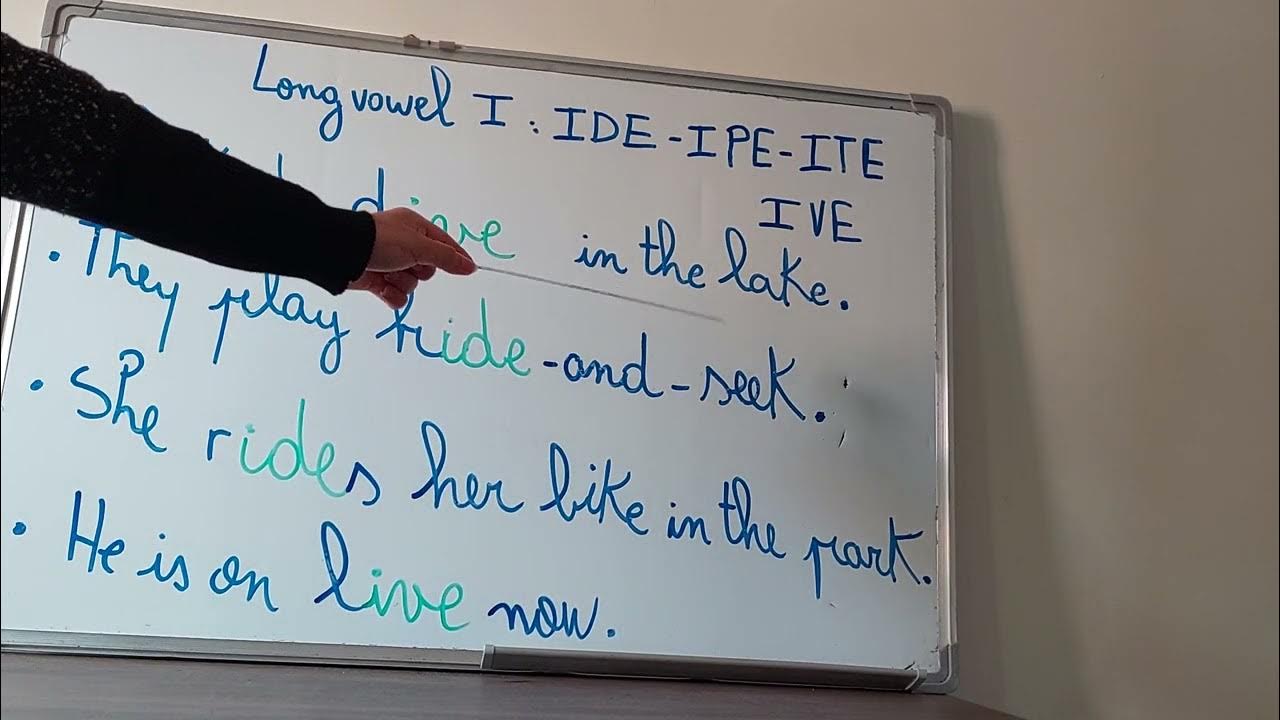 Long vowel I : IDE - IPE - ITE
IVE
dive in the lake.
• They play hide-and-seek.
• She rides her bike in the park.
• He is on live now.